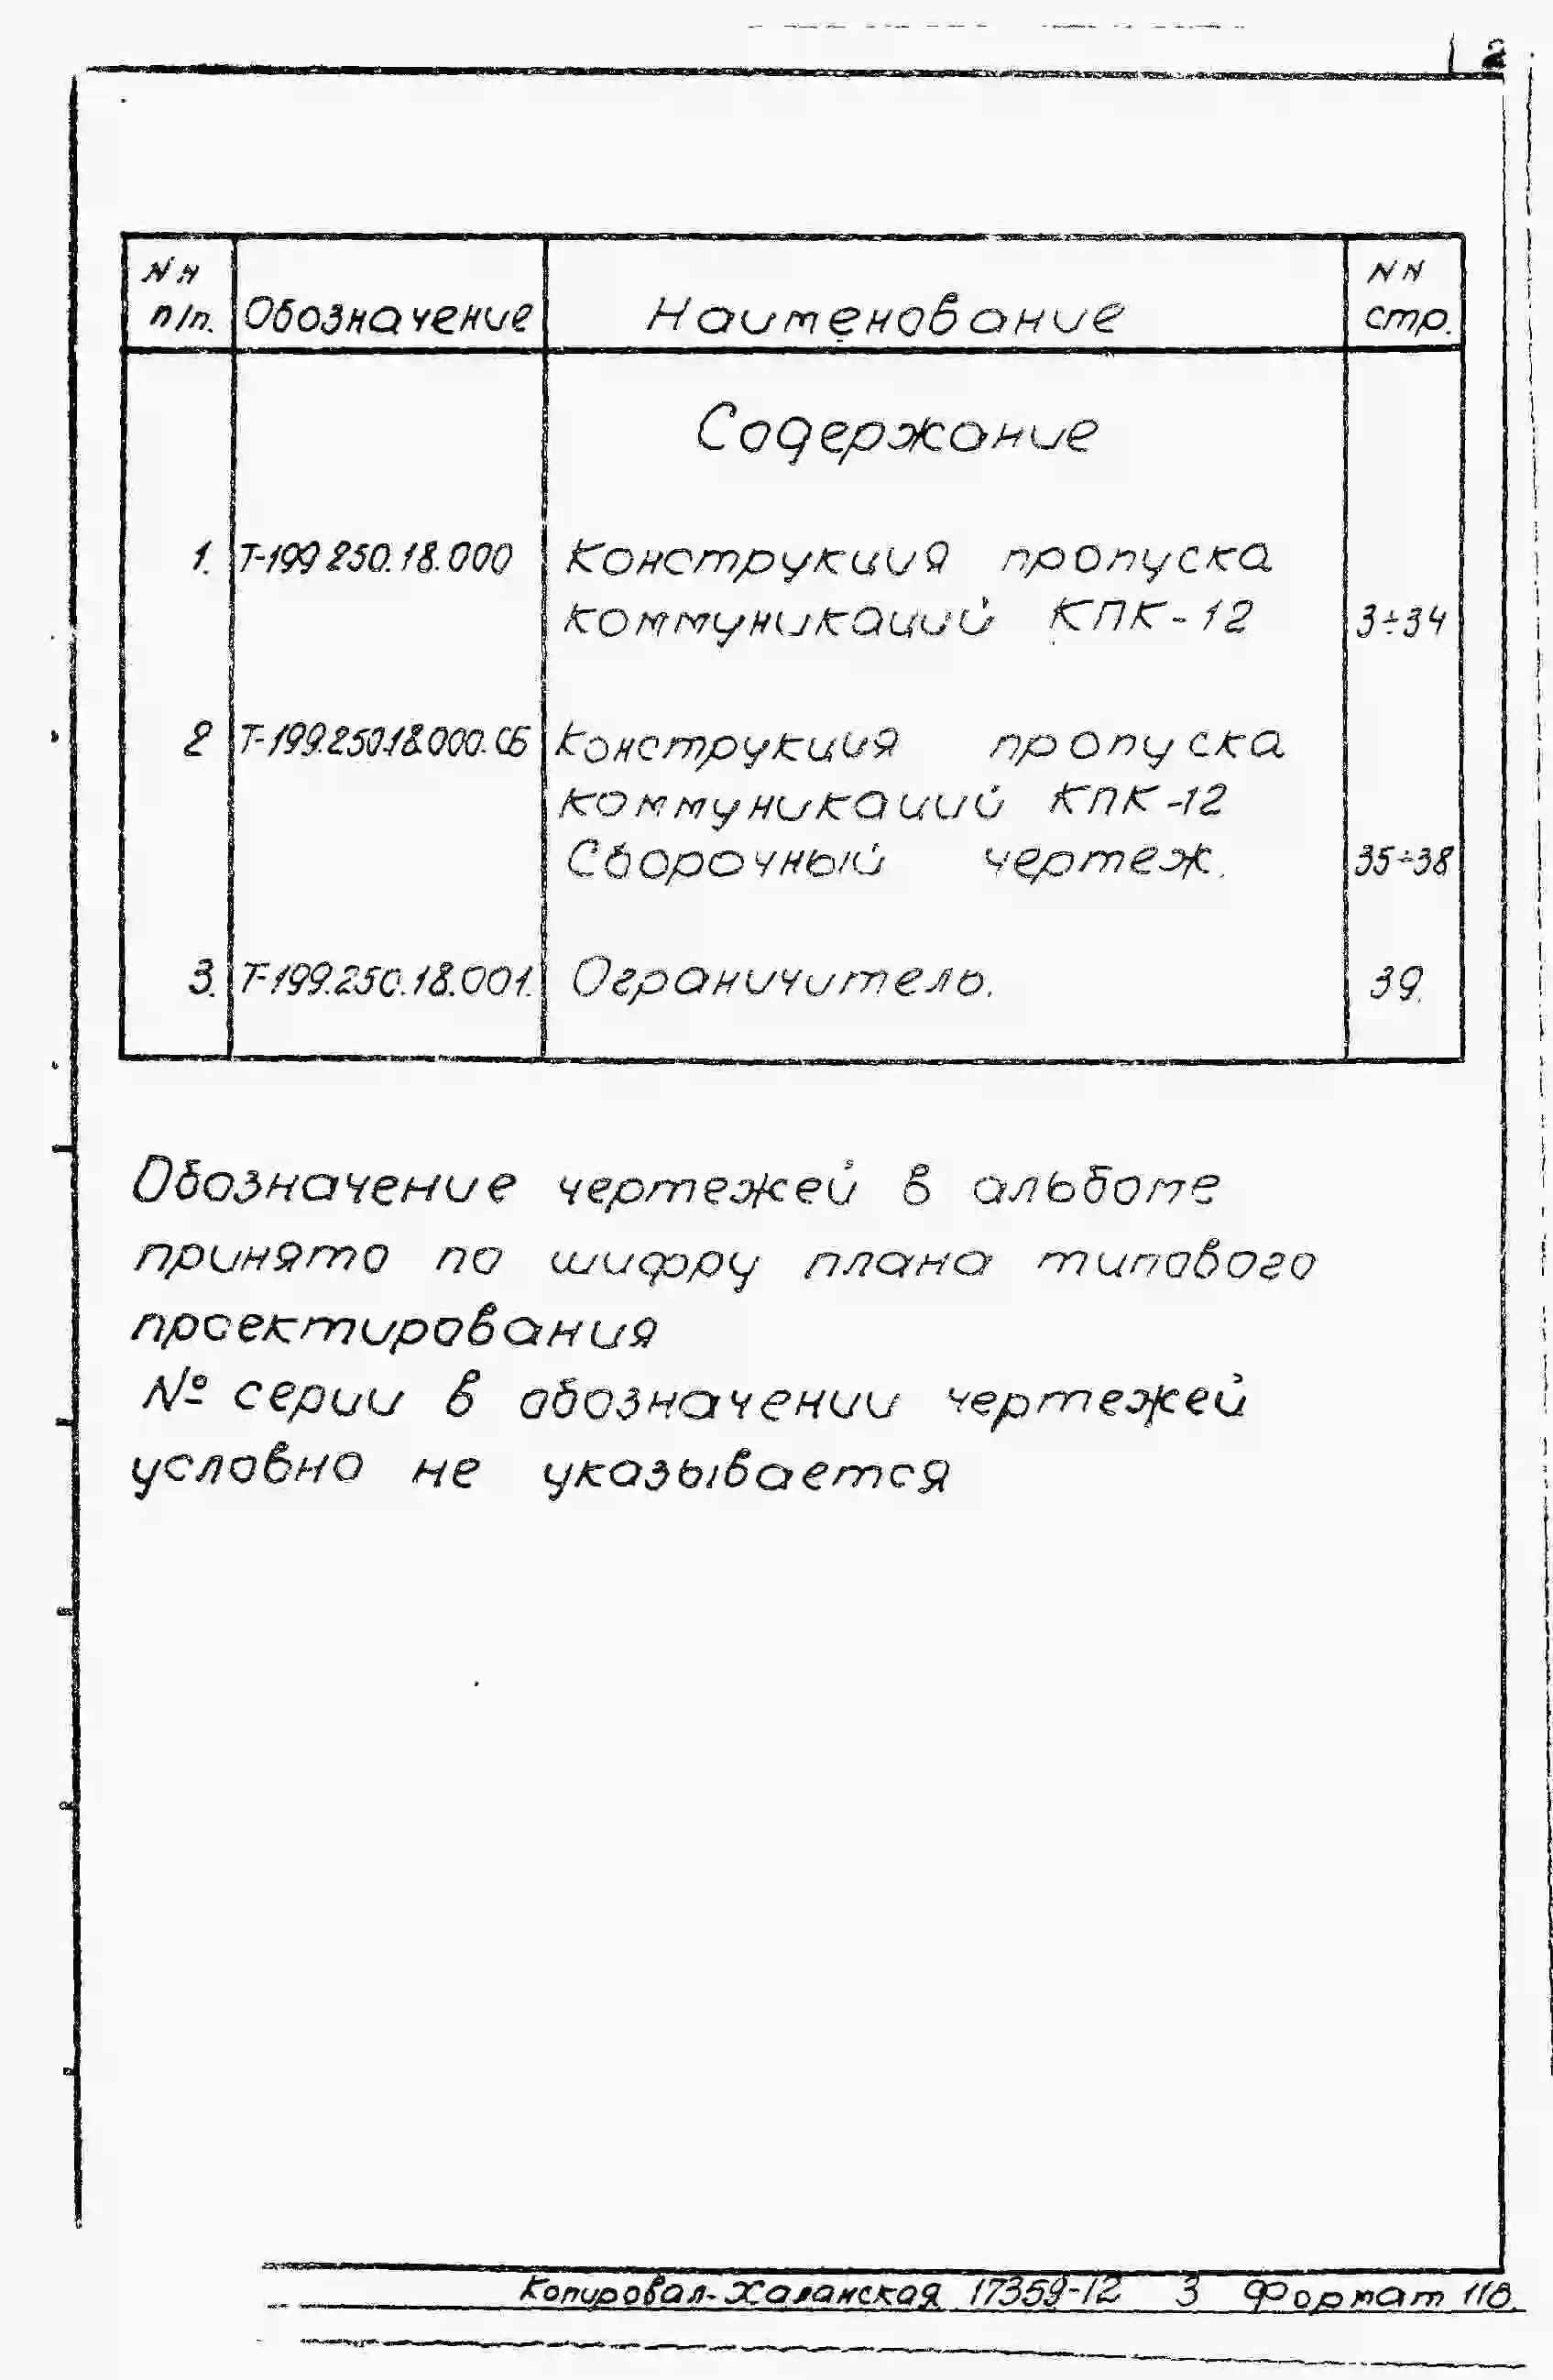 2
NN
п/п.
Обозначение
Наименование
NN
стр.
Содержание
1. Т-199 250.18.000 Конструкция пропуска
коммуникаций КПК-12 3÷34
2 Т-199.250.18.000.СБ Конструкция пропуска
коммуникаций КПК-12
Сборочный чертеж. 35÷38
3. Т-199.250.18.001. Ограничитель. 39.
Обозначение чертежей в альбоме
принято по шифру плана типового
проектирования
№ серии в обозначении чертежей
условно не указывается
Копировал- 17359-12 3 Формат